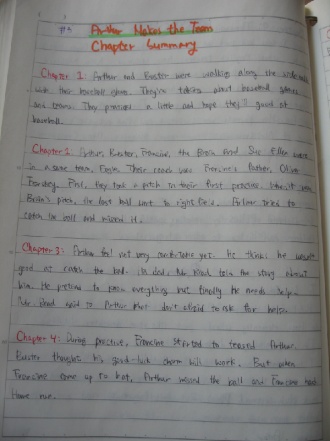 #4 Arthur Makes the Team
Chapter Summary
Chapter 1: Arthur and Buster were walking along the sidewalk
with their baseball gloves. They're talking about baseball games
and teams. They practiced a little and hope they'll good at
baseball.
Chapter 2: Arthur, Buster, Francine, the Brain and Sue Ellen were
in a same team, Their coach was Francine's father, Oliver
Frensky. First, they took a pitch in their first practice.
Brain's pitch, the last ball went to right field. Arthur tried to
catch the ball and missed it.
Chapter 3: Arthur feel not very comfortable yet. he thinks he wasn't
good at catch the ball. his dad, Mr. Read told the story about
him. He pretend to know everything but finally he needs help.
Mr. Read said to Arthur that don't afraid to ask for help.
Chapter 4: During practice, Francine started to teased Arthur.
Buster thought his good-luck charm will work. But when
Francine came up to bat, Arthur missed the ball and Francine
Home run.